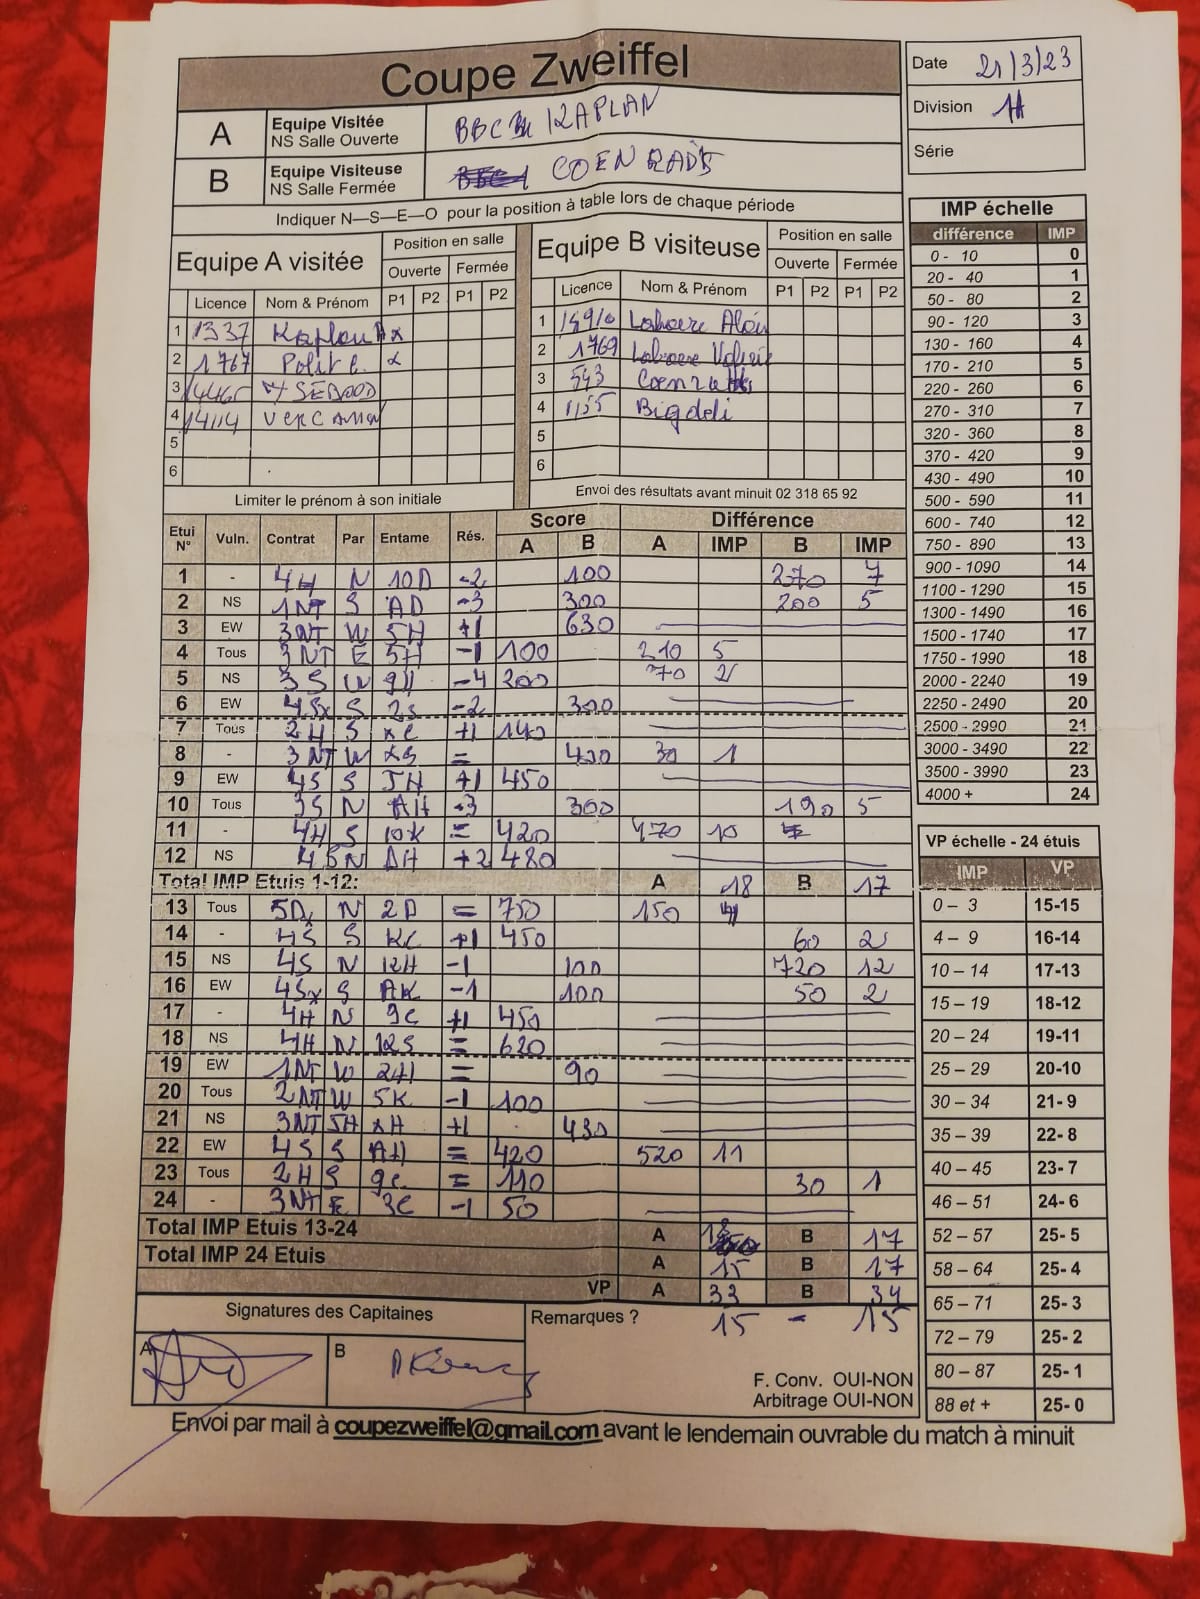 Coupe Zweiffel
Date 21/3/23
Division 1H
Série
A Equipe Visitée NS Salle Ouverte BBC KAPLAN
B Equipe Visiteuse NS Salle Fermée COENRADS
Indiquer N—S—E—O pour la position à table lors de chaque période
Equipe A visitée Position en salle
Ouverte Fermée
Licence Nom & Prénom P1 P2 P1 P2
1 1337 Kaplan A x
2 1767 Polit E. x
3
4
5
6
Limiter le prénom à son initiale
Equipe B visiteuse Position en salle
Ouverte Fermée
Licence Nom & Prénom P1 P2 P1 P2
1 Lahaere
2 1769 Lahaere Valérie
3 543
4 1155 Bigdeli
5
6
Envoi des résultats avant minuit 02 318 65 92
Etui N° Vuln. Contrat Par Entame Rés. Score Différence
A B A IMP B IMP
1 - 4H N 10D -2 100 270 7
2 NS 1NT S AD -3 300 200 5
3 EW 3NT W 5H +1 630
4 Tous 3NT E 5H -1 100 210 5
5 NS 3S W 9H -4 200 70 2
6 EW 4Sx S 2S -2 300
7 Tous 2H S xC +1 140
8 - 3NT W xS = 30 1
9 EW 4S S JH +1 450
10 Tous 3S N AH -3 300 190 5
11 - 4H S 10K = 420 470 10
12 NS 4S N AH +2 480
Total IMP Etuis 1-12: A 18 B 17
13 Tous 5Dx N 2D = 750 150 4
14 - 4S S KC +1 450 60 2
15 NS 4S N 12H -1 100 720 12
16 EW 4Sx S AK -1 100 50 2
17 - 4H N 9C +1 450
18 NS 4H N 12S = 620
19 EW 1NT W 2H = 90
20 Tous 2NT W 5K -1 100
21 NS 3NT xH +1 430
22 EW 4S S AH = 420 520 11
23 Tous 2H S 9C = 110 30 1
24 - 3NT E 3C -1 50
Total IMP Etuis 13-24 A B 17
Total IMP 24 Etuis A 15 B 17
VP A 33 B 34
Signatures des Capitaines
A
B
Remarques ? 15 - 15
F. Conv. OUI-NON
Arbitrage OUI-NON
Envoi par mail à coupezweiffel@gmail.com avant le lendemain ouvrable du match à minuit
IMP échelle
différence IMP
0 - 10 0
20 - 40 1
50 - 80 2
90 - 120 3
130 - 160 4
170 - 210 5
220 - 260 6
270 - 310 7
320 - 360 8
370 - 420 9
430 - 490 10
500 - 590 11
600 - 740 12
750 - 890 13
900 - 1090 14
1100 - 1290 15
1300 - 1490 16
1500 - 1740 17
1750 - 1990 18
2000 - 2240 19
2250 - 2490 20
2500 - 2990 21
3000 - 3490 22
3500 - 3990 23
4000 + 24
VP échelle - 24 étuis
IMP VP
0 – 3 15-15
4 – 9 16-14
10 – 14 17-13
15 – 19 18-12
20 – 24 19-11
25 – 29 20-10
30 – 34 21- 9
35 – 39 22- 8
40 – 45 23- 7
46 – 51 24- 6
52 – 57 25- 5
58 – 64 25- 4
65 – 71 25- 3
72 – 79 25- 2
80 – 87 25- 1
88 et + 25- 0